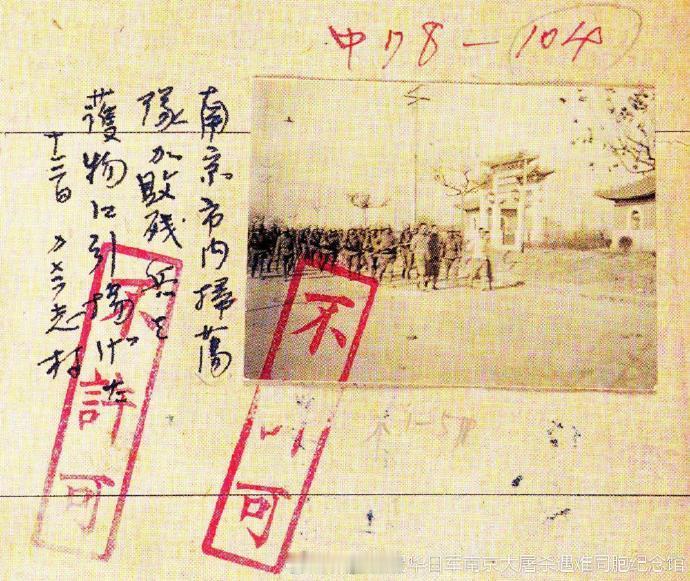 中178-104
南京市内掃蕩
隊が敗残兵を
獲物に引揚げた
十三日 カメラ志村
不許可
不許可
華日軍南京大屠杀遇难同胞纪念馆